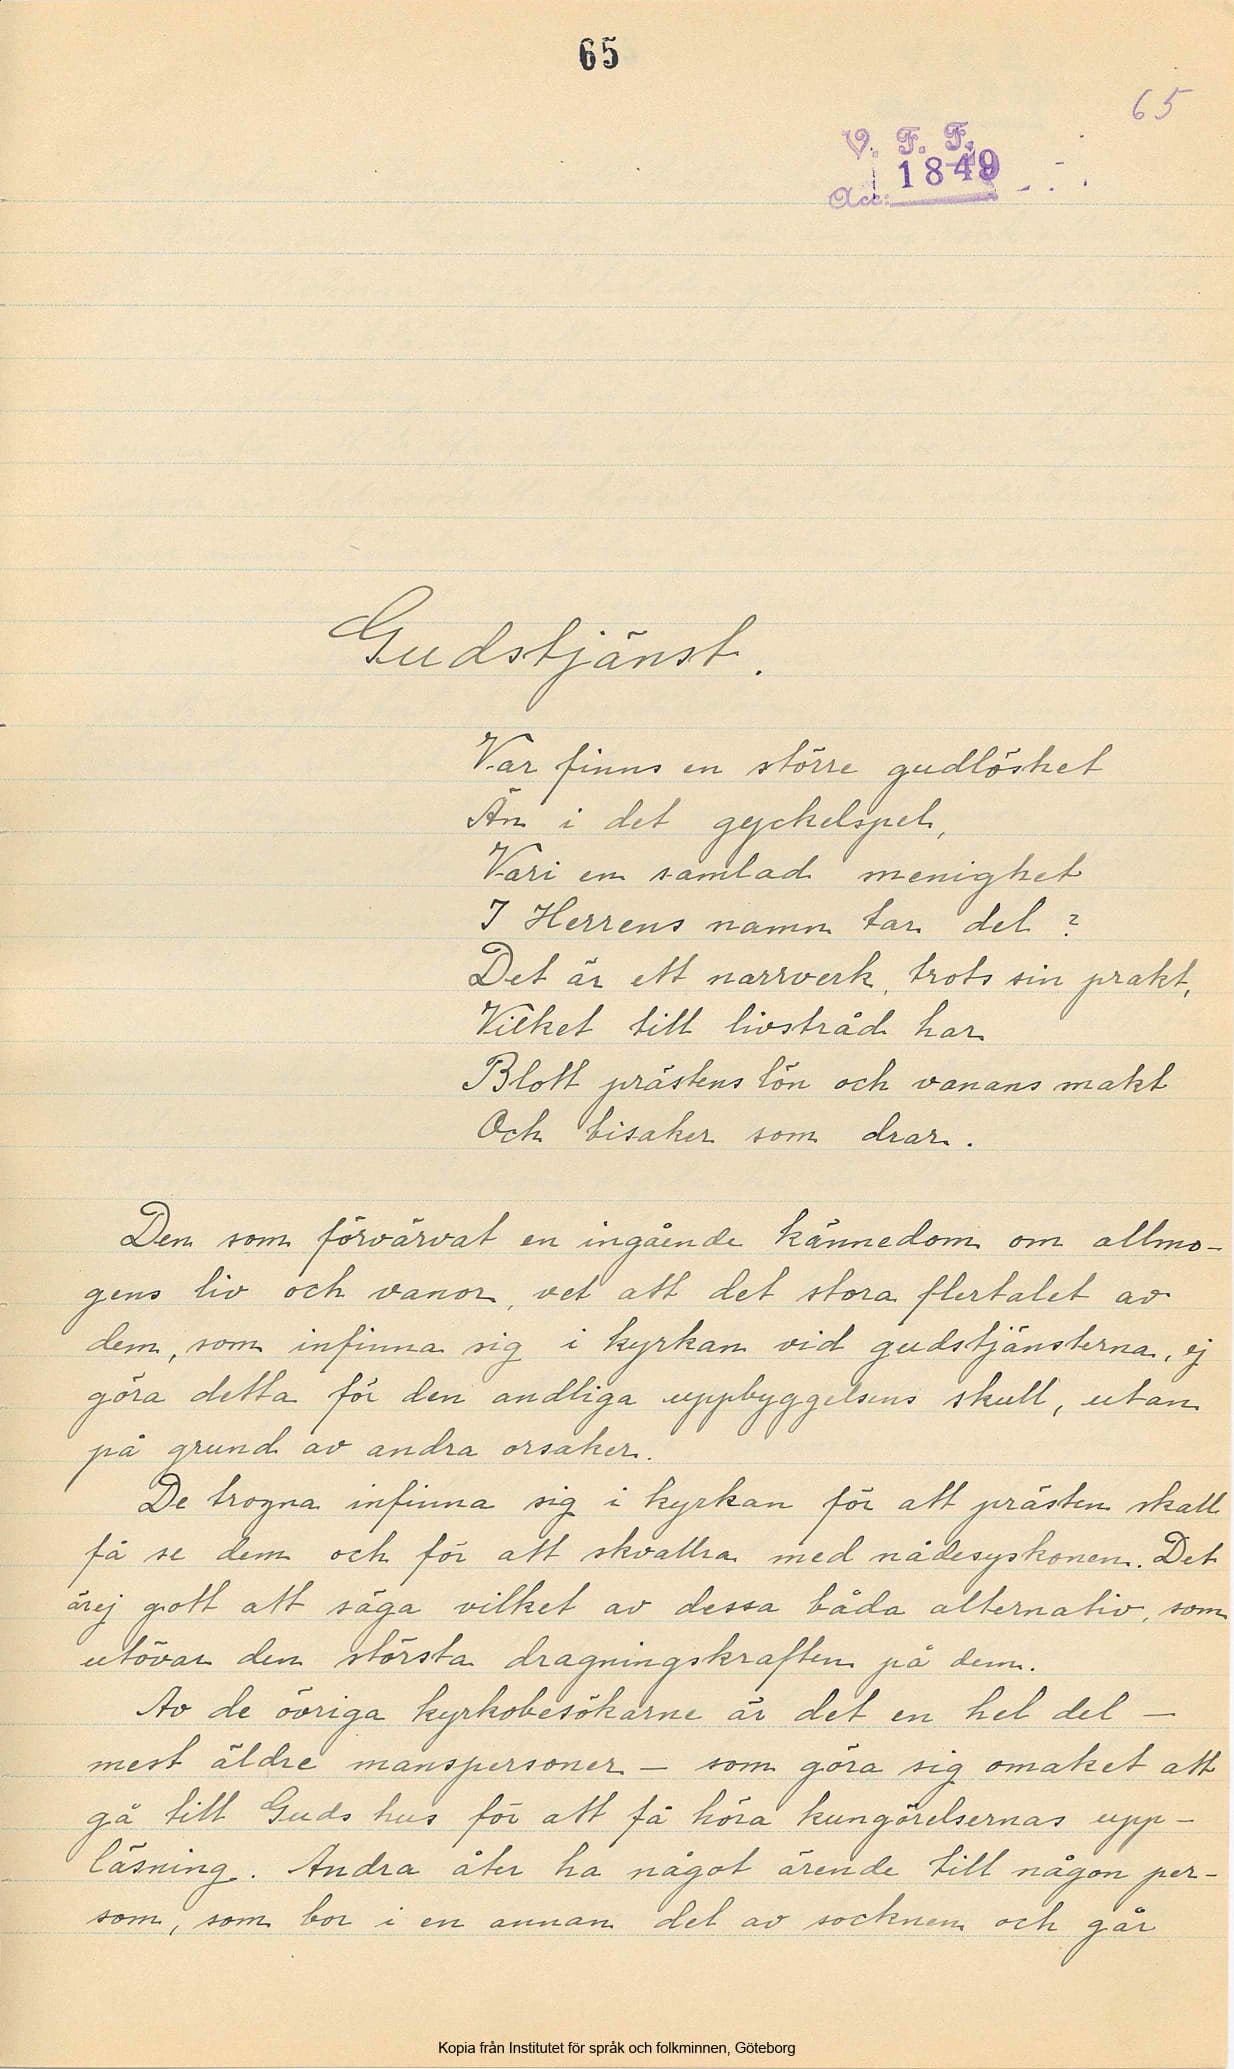 65
65
V. F. F.
1849
Acc:
Gudstjänst.
Var finns en större gudlöshet
Än i det gyckelspel,
Vari en samlad menighet
I Herrens namn tar del?
Det är ett narrverk, trots sin prakt,
Vilket till livstråd har
Blott prästens lön och vanans makt
Och bisaker som drar.
Den som förvärvat en ingående kännedom om allmo-
gens liv och vanor, vet att det stora flertalet av
dem, som infinna sig i kyrkan vid gudstjänsterna, ej
göra detta för den andliga uppbyggelsens skull, utan
på grund av andra orsaker.
De trogna infinna sig i kyrkan för att prästen skall
få se dem och för att skvallra med nådesyskonen. Det
är ej gott att säga vilket av dessa båda alternativ, som
utövar den största dragningskraften på dem.
Av de övriga kyrkobesökarne är det en hel del —
mest äldre manspersoner — som göra sig omaket att
gå till Guds hus för att få höra kungörelsernas upp-
läsning. Andra åter ha något ärende till någon per-
son, som bor i en annan del av socknen och går
Kopia från Institutet för språk och folkminnen, Göteborg